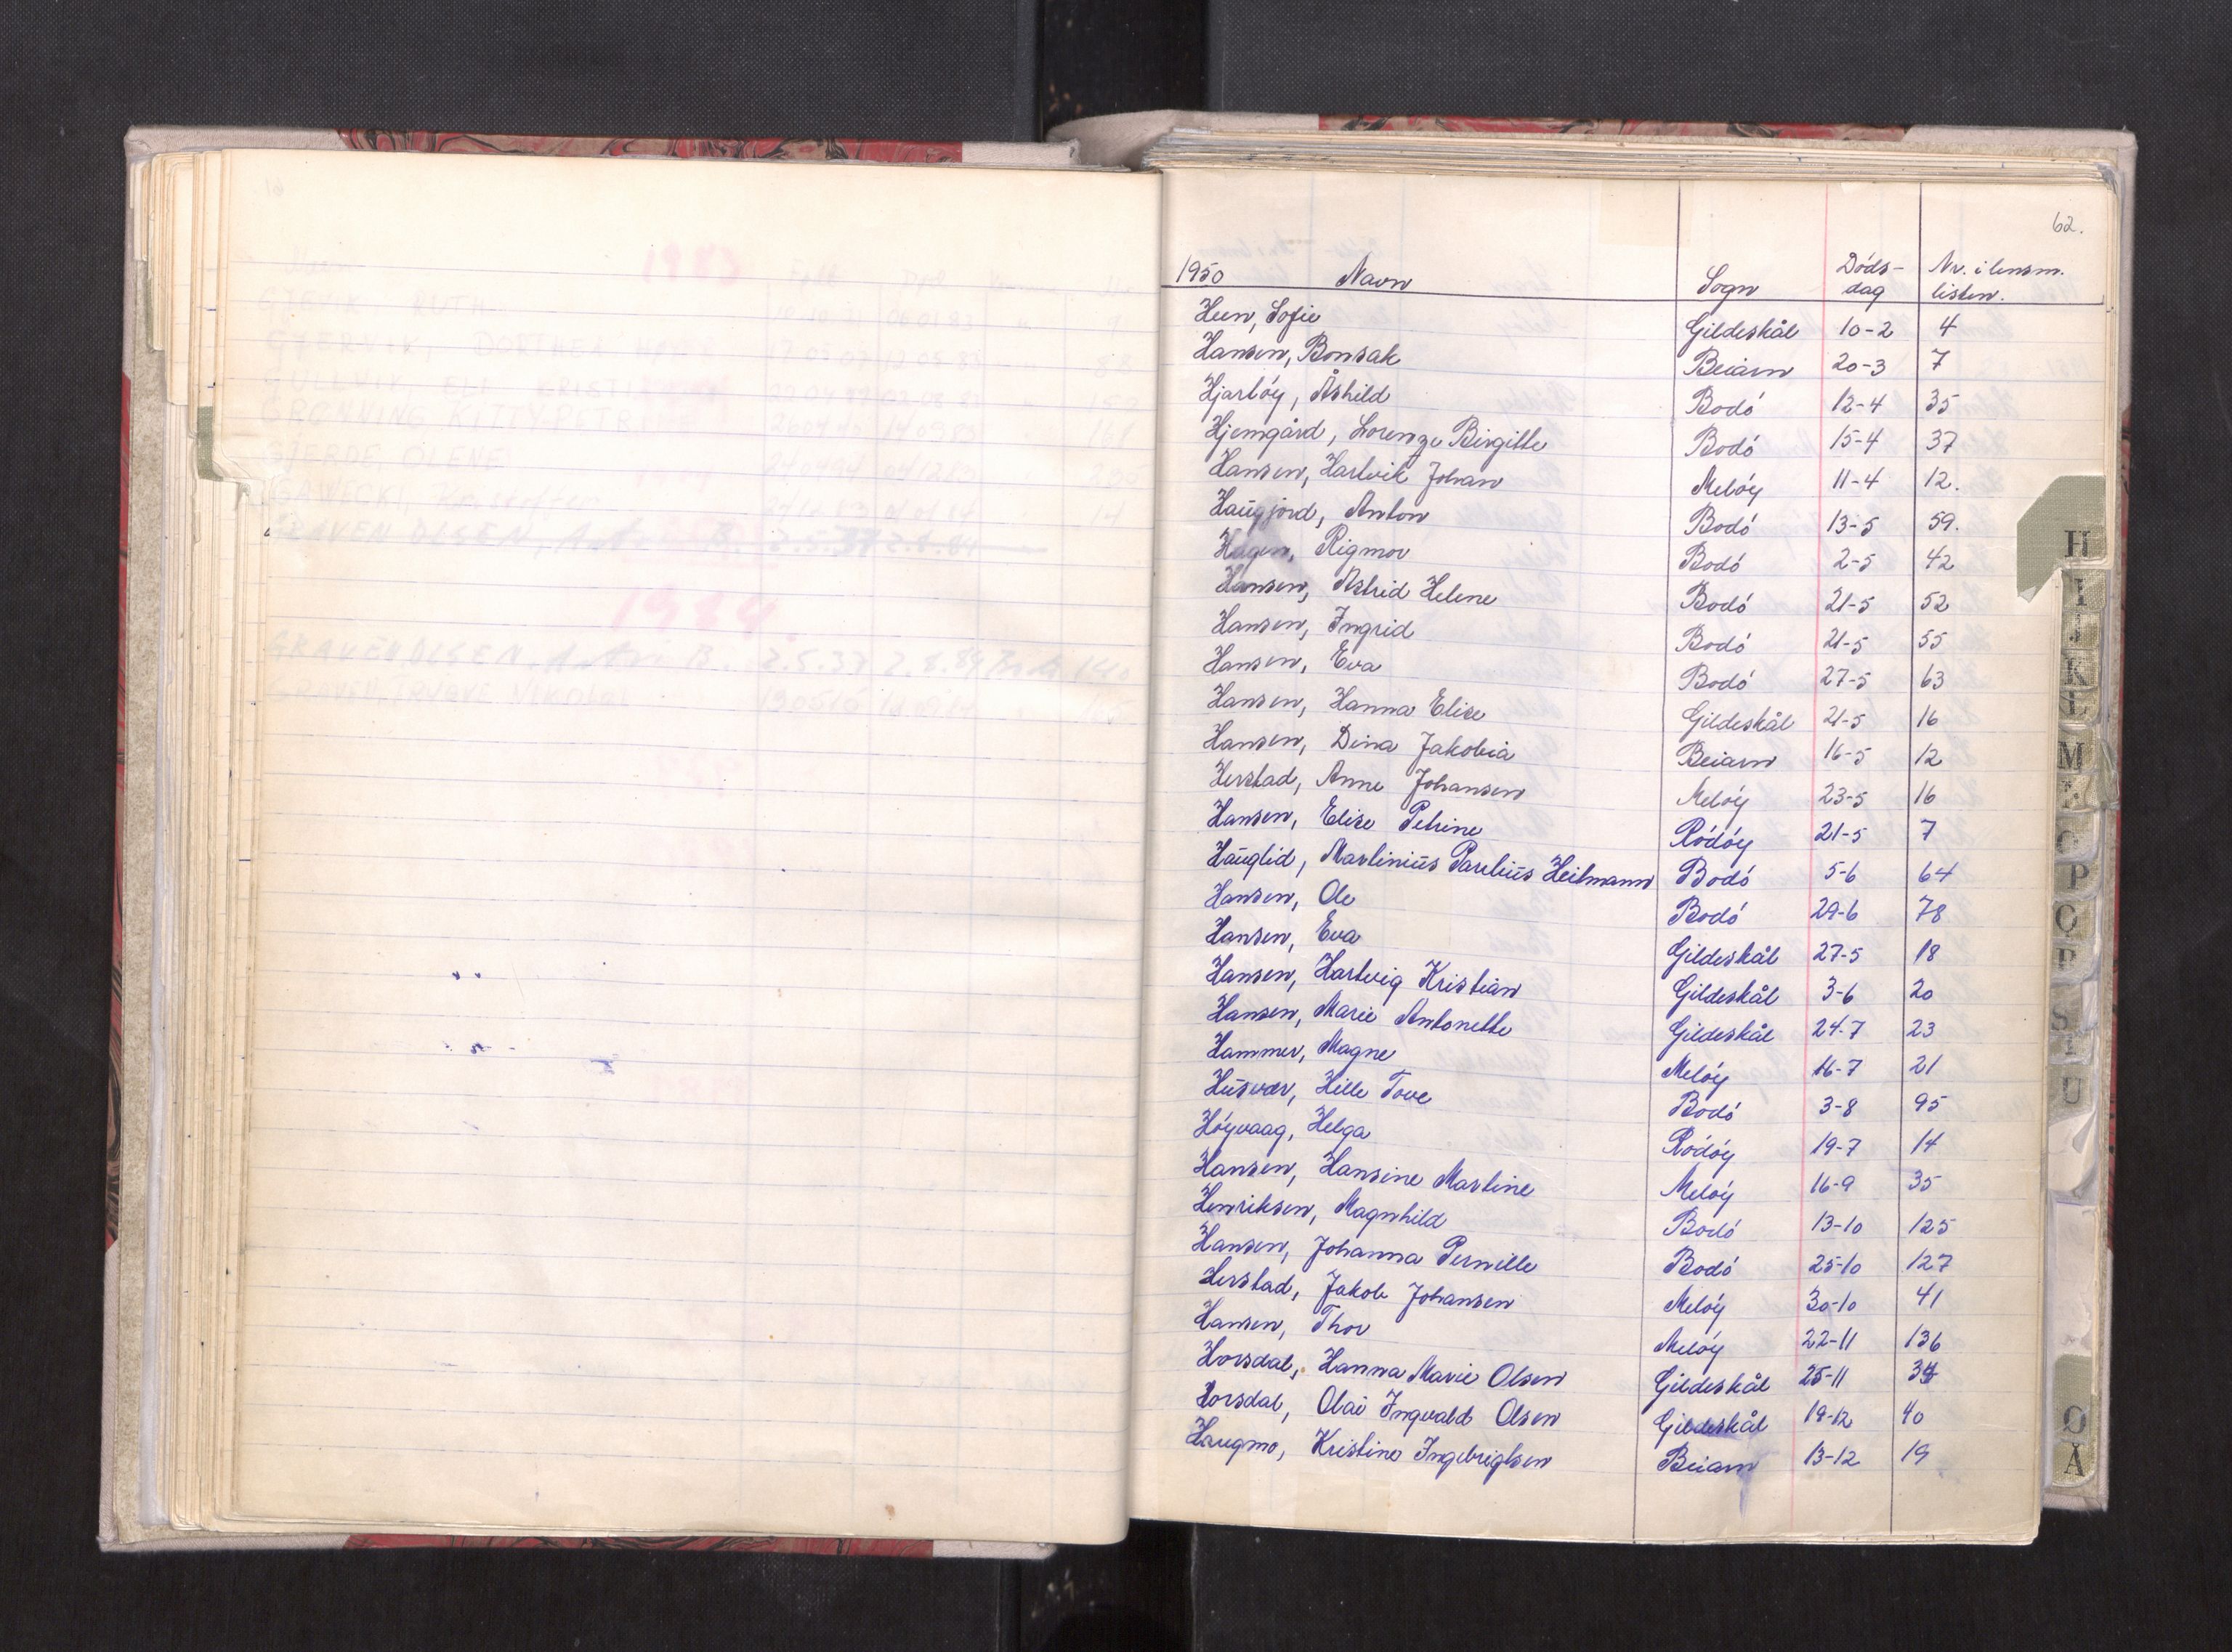 62.
1950 Navn Sogn Døds-dag Nr. i lensm. listen.
Heen, Sofie Gildeskål 10-2 4
Hansen, Bonsak Beiarn 20-3 7
Hjartøy, Åshild Bodø 12-4 35
Hjemgård, Lorenze Birgitte Bodø 15-4 37
Hansen, Hartvik Johan Meløy 11-4 12.
Haugjord, Anton Bodø 13-5 59.
Hagen, Rigmor Bodø 2-5 42
Hansen, Astrid Helene Bodø 21-5 52
Hansen, Ingrid Bodø 21-5 55
Hansen, Eva Bodø 27-5 63
Hansen, Hanna Elise Gildeskål 21-5 16
Hansen, Dina Jakobia Beiarn 16-5 12
Herstad, Anne Johansen Meløy 23-5 16
Hansen, Elise Petrine Rødøy 21-5 7
Hauglid, Martinius Parelius Heitmann Bodø 5-6 64
Hansen, Ole Bodø 29-6 78
Hansen, Eva Gildeskål 27-5 18
Hansen, Hartvig Kristian Gildeskål 3-6 20
Hansen, Marie Antonette Gildeskål 24-7 23
Hammer, Magne Meløy 16-7 21
Husvær, Hille Tove Bodø 3-8 95
Høyvaag, Helga Rødøy 19-7 14
Hansen, Hansine Martine Meløy 16-9 35
Henriksen, Magnhild Bodø 13-10 125
Hansen, Johanna Pernille Bodø 25-10 127
Herstad, Jakob Johansen Meløy 30-10 41
Hansen, Thor Meløy 22-11 136
Horsdal, Hanna Marie Olsen Gildeskål 25-11
Horsdal, Olai Ingvald Olsen Gildeskål 19-12 40
Haugmo, Kristine Ingebrigtsen Beiarn 13-12 19
H
I
J
K
L
M
P
S
U
Ø
Å